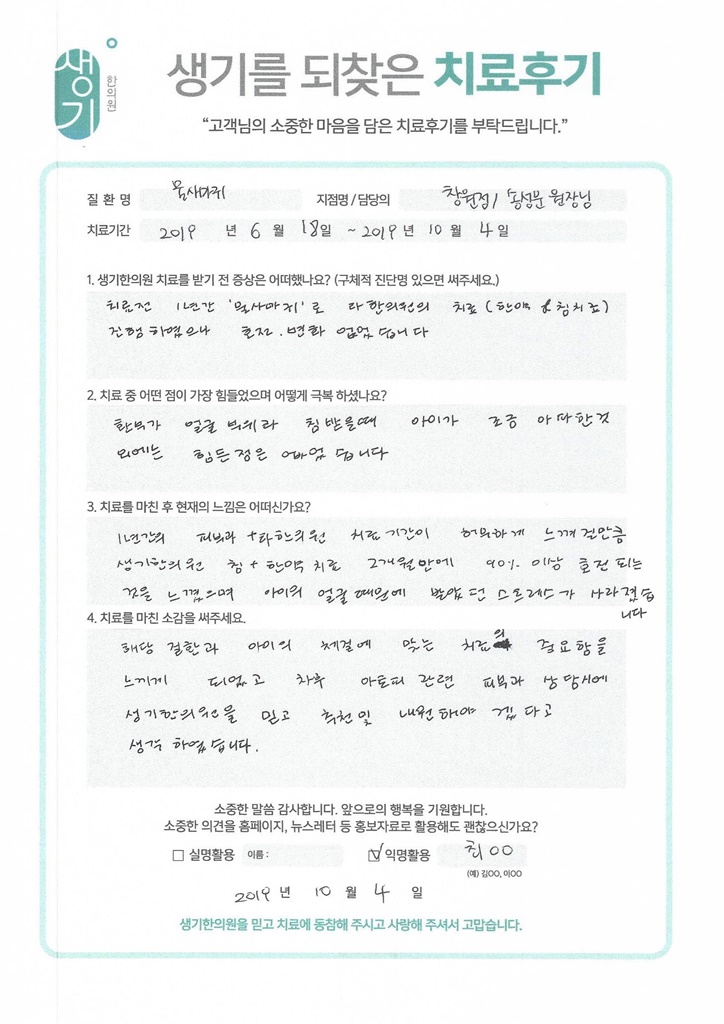 생기
한의원
생기를 되찾은 치료후기
“고객님의 소중한 마음을 담은 치료후기를 부탁드립니다.”
질 환 명 물사마귀 지점명 / 담당의 창원점 / 송성문 원장님
치료기간 2019 년 6 월 18일 ~ 2019 년 10 월 4 일
1. 생기한의원 치료를 받기 전 증상은 어떠했나요? (구체적 진단명 있으면 써주세요.)
치료전 1년간 '물사마귀'로 타한의원의 치료 (한약 & 침치료)
진행 하였으나 호전. 변화 없었 습니다
2. 치료 중 어떤 점이 가장 힘들었으며 어떻게 극복 하셨나요?
환부가 얼굴 부위라 침 받을때 아이가 조금 아파한것
외에는 힘든점은 없었 습니다
3. 치료를 마친 후 현재의 느낌은 어떠신가요?
1년간의 피부과 + 타한의원 치료 기간이 허무하게 느껴질만큼
생기한의원 침 + 한약 치료 2개월만에 90% 이상 호전 되는
것을 느꼈으며 아이의 얼굴 때문에 받았던 스트레스가 사라졌습
니다
4. 치료를 마친 소감을 써주세요.
해당 질환과 아이의 체질에 맞는 치료의 중요함을
느끼게 되었고 차후 아토피 관련 피부과 상담시에
생기한의원을 믿고 추천 및 내원해야 겠다고
생각 하였습니다.
소중한 말씀 감사합니다. 앞으로의 행복을 기원합니다.
소중한 의견을 홈페이지, 뉴스레터 등 홍보자료로 활용해도 괜찮으신가요?
□ 실명활용 이름 : ☑ 익명활용 최OO
(예) 김OO, 이OO
2019 년 10 월 4 일
생기한의원을 믿고 치료에 동참해 주시고 사랑해 주셔서 고맙습니다.